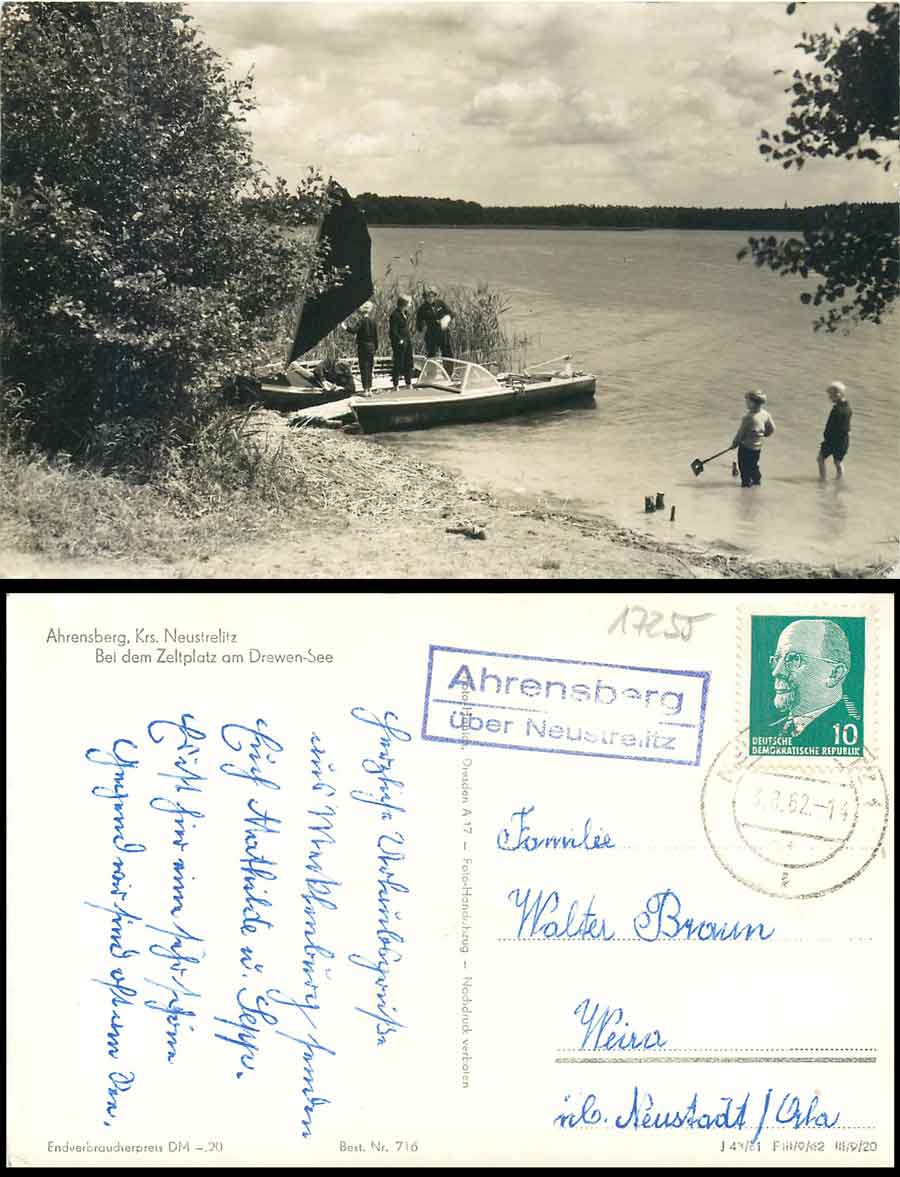 Ahrensberg, Krs. Neustrelitz
Bei dem Zeltplatz am Drewen-See
17255
Ahrensberg
über Neustrelitz
10
DEUTSCHE
DEMOKRATISCHE REPUBLIK
8.62.-14
Herzliche Urlaubsgrüße
aus Mecklenburg senden
Euch Mathilde u. Sepp.
Es ist hier eine sehr schöne
Gegend wir sind oft am See.
Dresden A 17 – Foto-Handabzug – Nachdruck verboten
Familie
Walter Braun
Weira
üb. Neustadt/Orla
Endverbraucherpreis DM –.20
Best. Nr. 716
J 43/61 F III/9/62 III/9/20